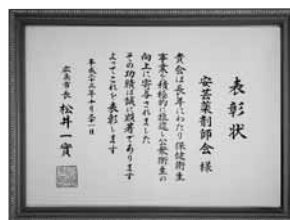 表彰状
安芸薬剤師会様
貴会は長年にわたり保健衛生
事業を積極的に推進し公衆衛生の
向上に寄与されました
その功績は誠に顕著であります
よってこれを表彰します
平成二十三年十月二十一日
広島市長 松井一實